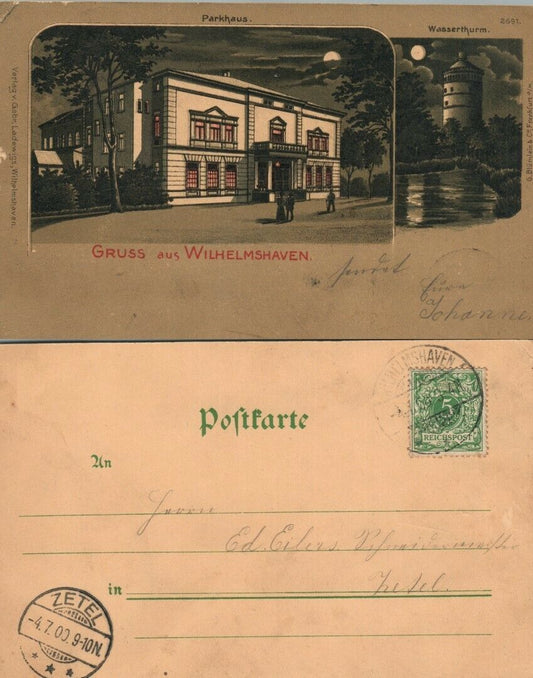 Parkhaus.
2691.
Wasserthurm.
Verlag v. Gebr. Ladewigs, Wilhelmshaven.
GRUSS aus WILHELMSHAVEN.
sendet
Eure
Johanne
WILHELMSHAVEN
Postkarte
5
REICHSPOST
An
Herrn
Ed. Eilers Schneidermeister
in Zetel.
ZETEL
-4.7.00.9-10N.